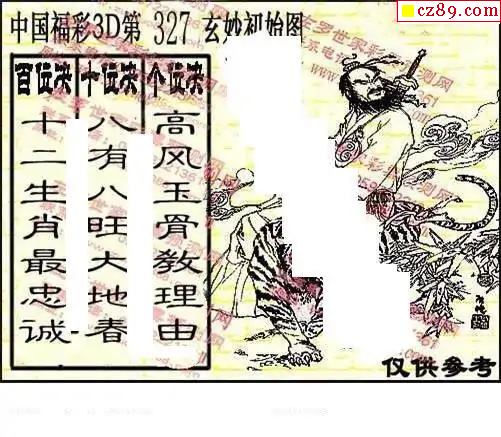 cz89.com
中国福彩3D第 327 玄妙初始图
百位决 十位决 个位决
十二生肖最忠诚
八有八旺大地春
高风玉骨教理由
仅供参考